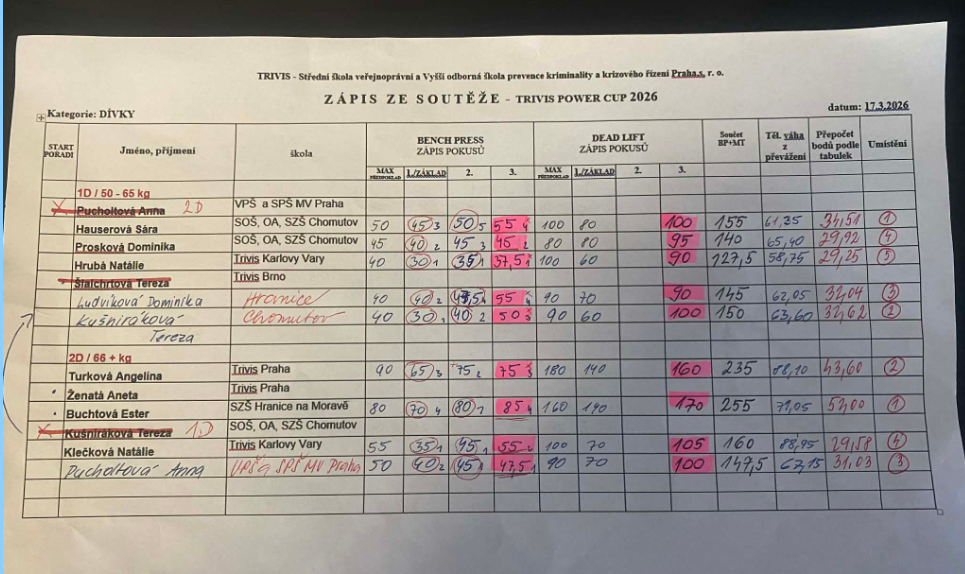 TRIVIS - Střední škola veřejnoprávní a Vyšší odborná škola prevence kriminality a krizového řízení Praha,s, r. o.
ZÁPIS ZE SOUTĚŽE - TRIVIS POWER CUP 2026
Kategorie: DÍVKY datum: 17.3.2026
START POŘADÍ Jméno, příjmení škola BENCH PRESS ZÁPIS POKUSŮ DEAD LIFT ZÁPIS POKUSŮ Součet BP+MT Těl. váha z převážení Přepočet bodů podle tabulek Umístění
MAX PŘEDPOKLAD 1./ZÁKLAD 2. 3. MAX PŘEDPOKLAD 1./ZÁKLAD 2. 3.
1D / 50 - 65 kg
Pucholtová Anna 2D VPŠ a SPŠ MV Praha
Hauserová Sára SOŠ, OA, SZŠ Chomutov 50 45 3 50 5 55 100 80 100 155 61,35 34,51 1
Prosková Dominika SOŠ, OA, SZŠ Chomutov 45 40 2 45 3 45 2 80 80 95 140 65,40 29,92 4
Hrubá Natálie Trivis Karlovy Vary 40 30 1 35 1 37,5 1 100 60 90 127,5 58,75 29,25 5
Šlaichrtová Tereza Trivis Brno
Ludvíková Dominika Hranice 40 40 2 55 90 70 90 145 62,05 3
Kušniráková Tereza Chomutov 40 30 40 2 50 90 60 100 150 63,60 2
2D / 66 + kg
Turková Angelina Trivis Praha 90 65 3 75 2 75 180 140 160 235 88,10 43,60 2
Ženatá Aneta Trivis Praha
Buchtová Ester SZŠ Hranice na Moravě 80 70 4 80 85 160 140 170 255 1
Kušniráková Tereza 1D SOŠ, OA, SZŠ Chomutov
Klečková Natálie Trivis Karlovy Vary 55 35 1 45 1 55 100 70 105 160 88,95 29,58 4
Pucholtová Anna VPŠ a SPŠ MV Praha 50 40 2 45 47,5 90 70 100 147,5 67,15 31,03 3